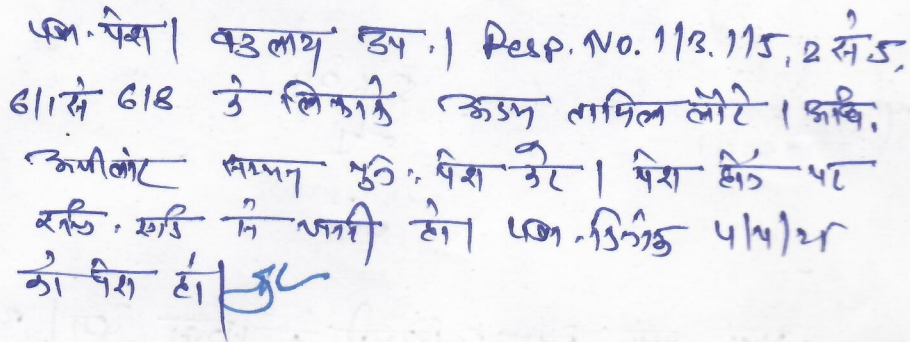 पत्रा. पेश। वकलाय उप.। Resp. No. 1/3, 1/5, 2 से 5,
6/1 से 6/8 के लिफाफे अदम तामिल लौटे। अधि.
अपीलांट सम्मन पुनः पेश करे। पेश होने पर
रजि. जारी हो। पत्रा. दिनांक
को पेश हो।